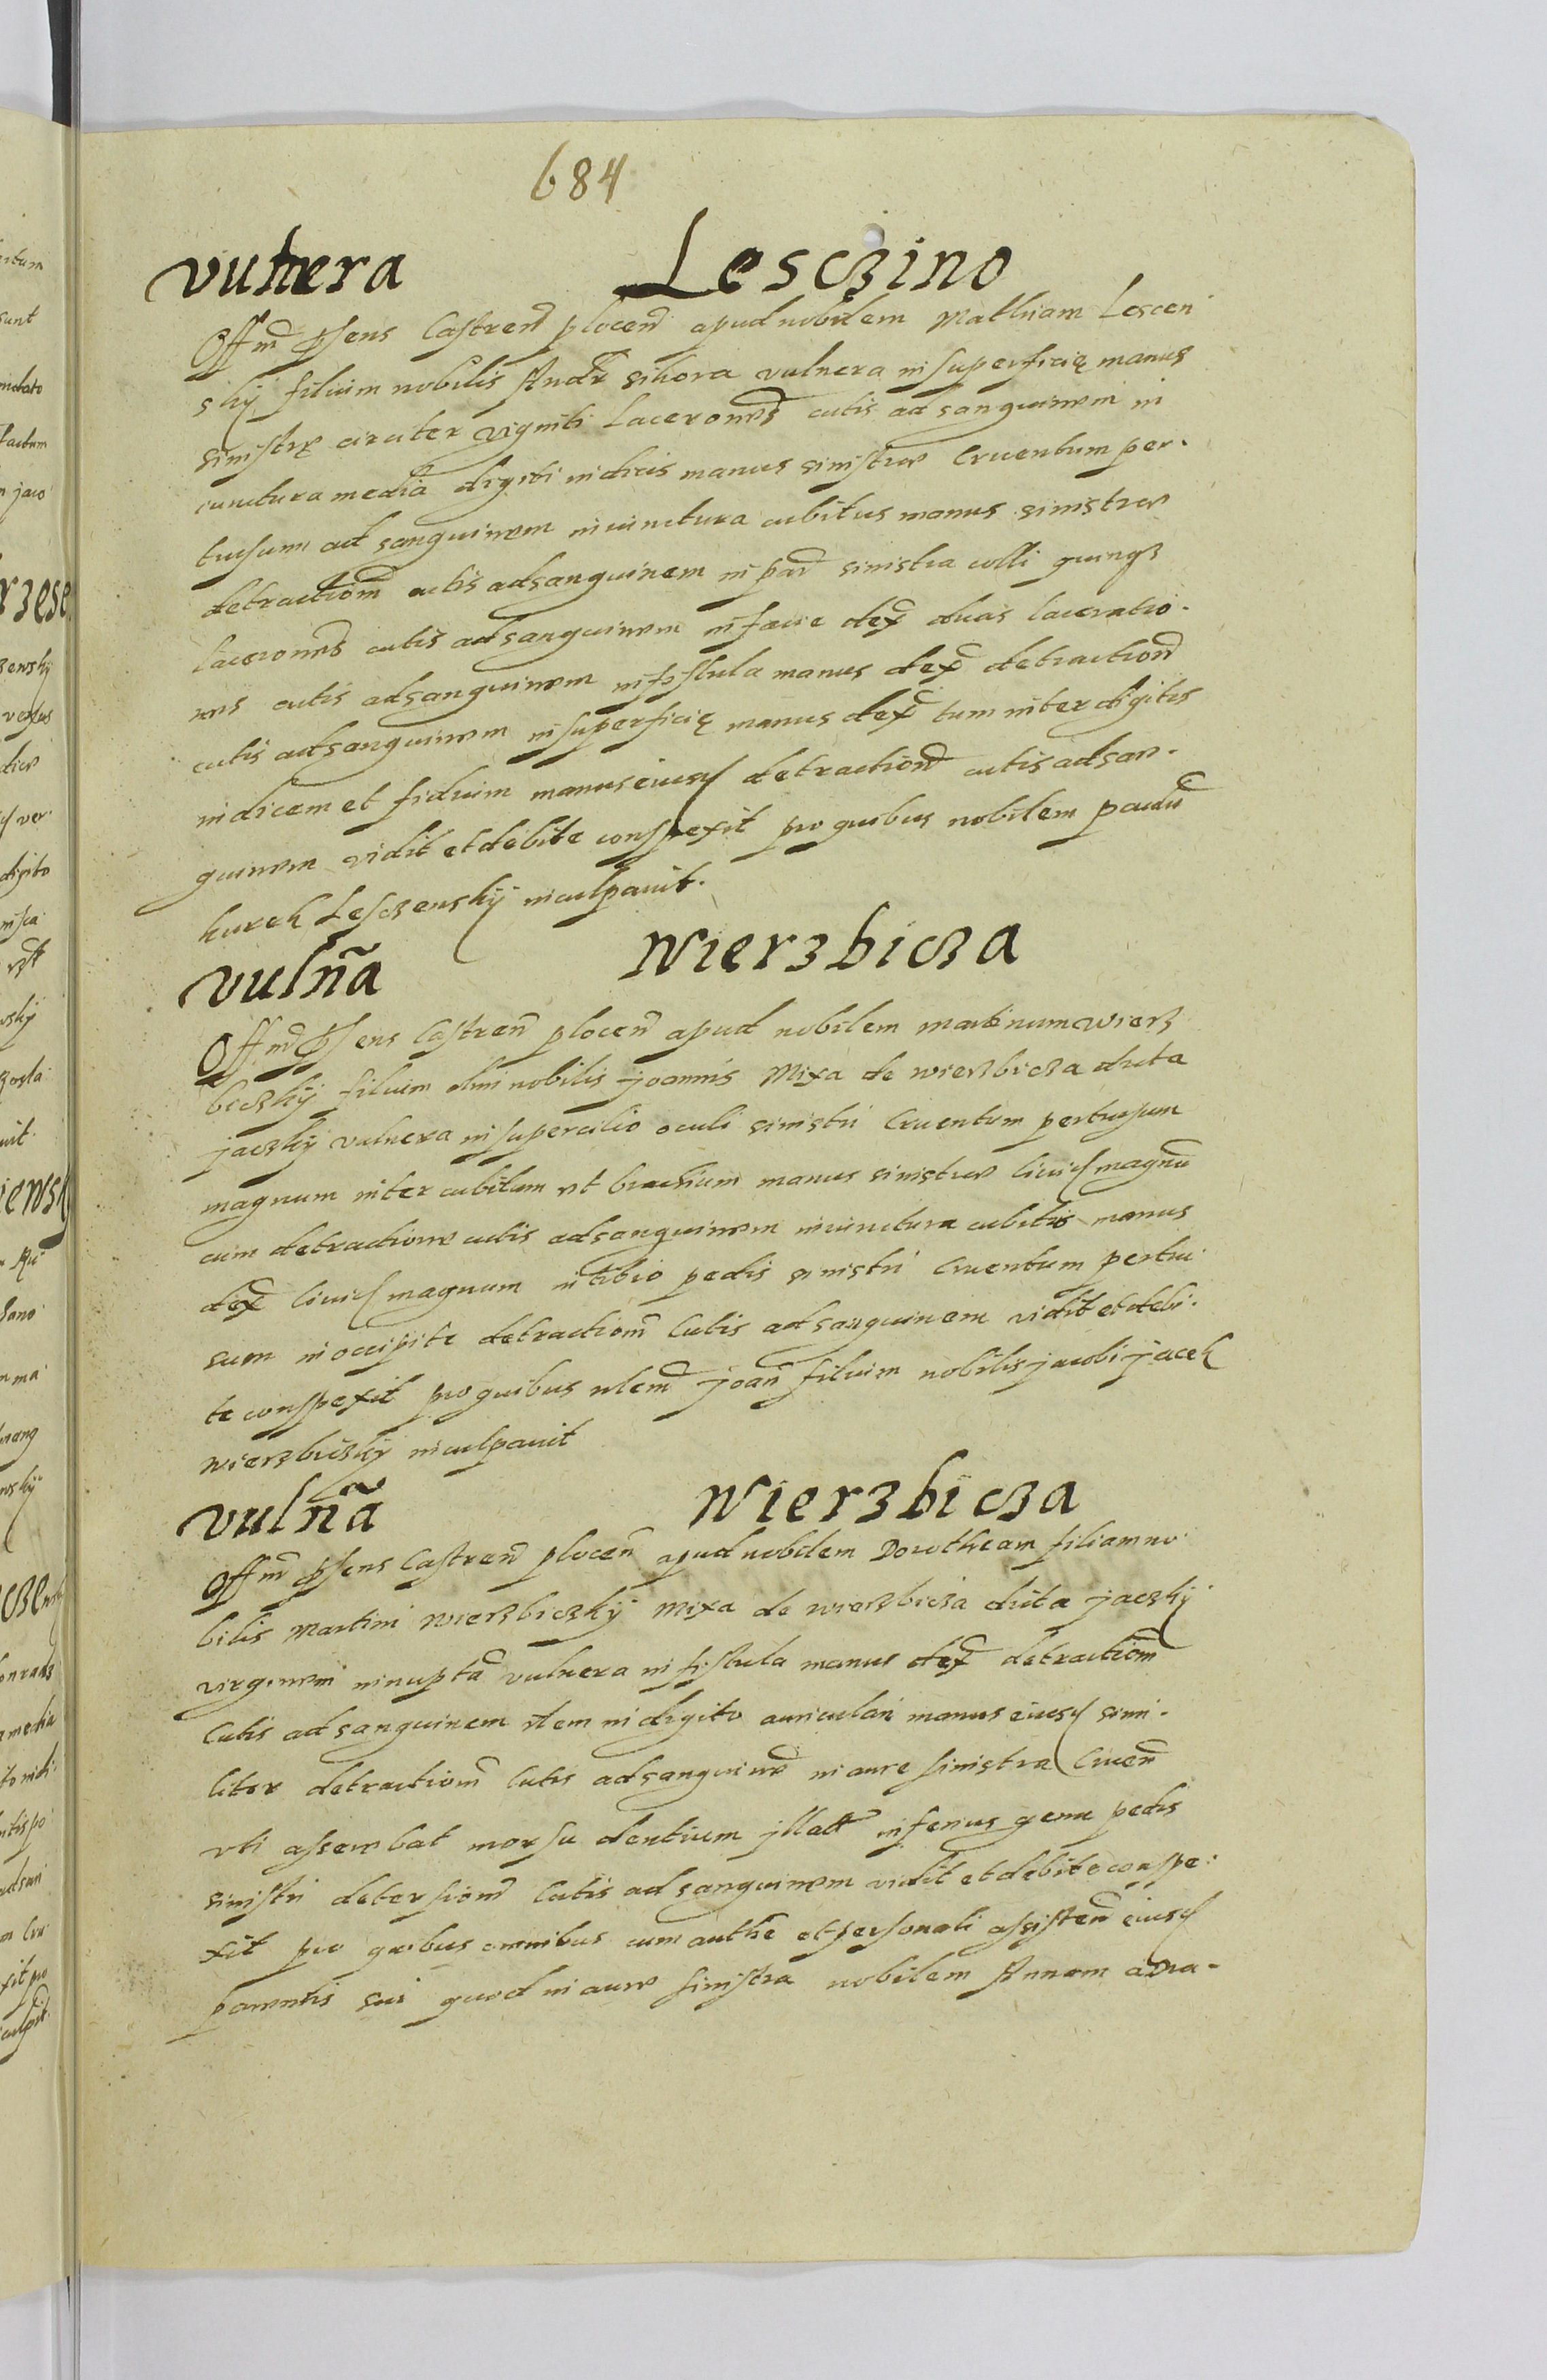 684
vulnera Lesczino
Offm psens Castren plocen apud nobilem Mathiam Lescen
skÿ filium nobilis Andr sikora vulnera in superficię manus
sinistrę circiter viginti Lacerones cutis ad sanguinem in
iunctura media digiti indicis manus sinistre Cruentum per-
tusum ad sanguinem in iunctura cubitus manus sinistre
detractiom cutis ad sanguinem in par sinistra colli quinqȝ
lacerones cutis ad sanguinem in facie dex duas laceratio-
nes cutis ad sanguinem in fistula manus dex detraction
cutis ad sanguinem in superficię manus dex tum inter digitis
indicem et fidium manus eiusd detraction cutis ad san-
guinem vidit et debite conspexit pro quibus nobilem paulu
kurek Lesczenskÿ inculpauit.
vulña Wierzbicza
Offm psens Castren plocen apud nobilem martinum wierz
biczkÿ filium olim nobilis joannis Mixa de wierzbicza dicta
jaczkÿ vulnera in supercilio oculi sinistri Cruentum pertusum
magnum inter cubitum et brachium manus sinistre liuid magnu
cum detractione cutis ad sanguinem in iunctura cubitis manus
dex liuid magnum in tibio pedis sinistri Cruentum pertu-
sum in occipite detractiom Cutis ad sanguinem vidit et debi-
te conspexit pro quibus nlem joan filium nobilis jacobi jacek
wierzbiczkÿ inculpauit
vulña Wierzbicza
Offm psens Castren plocen apud nobilem Dorotheam filiam no
bilis Martini Wierzbiczkÿ Mixa de wierzbicza dicta jaczkÿ
virginem innupta vulnera in fistula manus dex detractiom
Cutis ad sanguinem item in digito auriculari manus eiusd simi-
liter detractiom Cutis ad sanguine in aure sinistra Cruen
vti asserebat morsu dentium jllatu inferius genu pedis
sinistri detersiom Cutis ad sanguinem vidit et debite conspe-
xit pro quibus omnibus cum authe et personali assisten eiusd
parentis sui quod in aure sinistra nobilem Annam